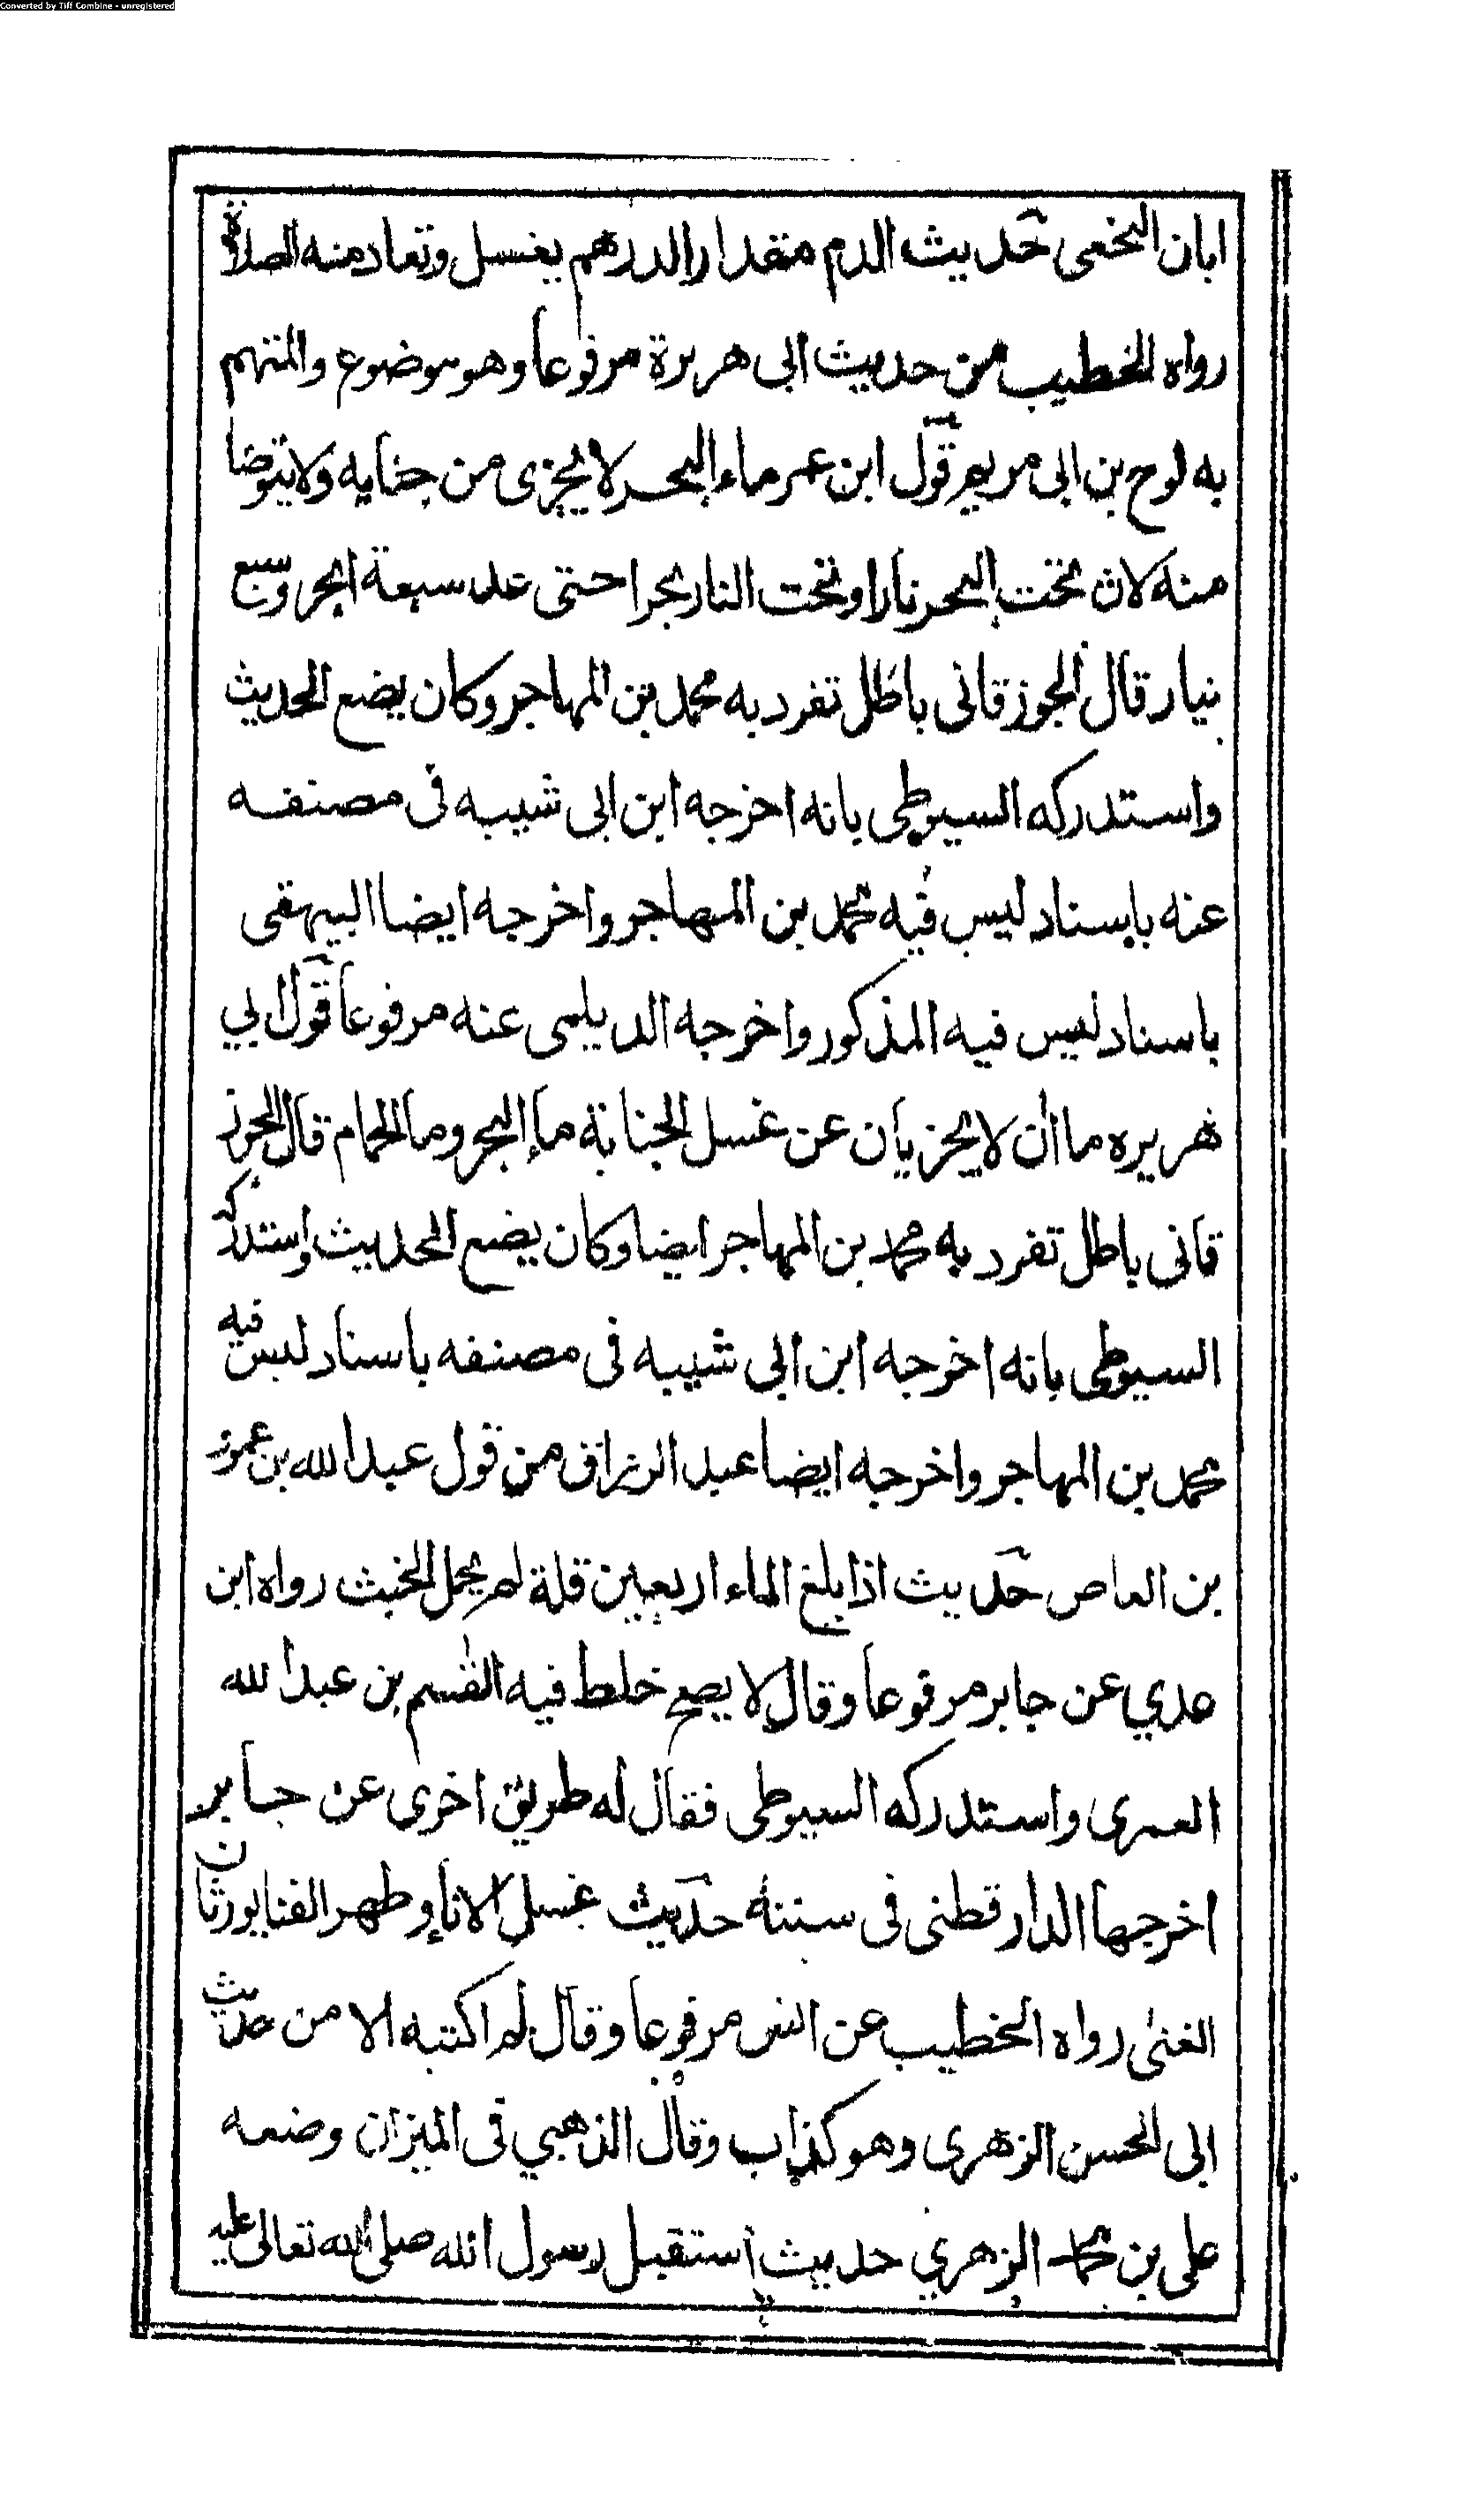 Converted by Tiff Combine - unregistered
ابان النخعى حديث الدم مقدار الدرهم يغسل وتعاد منه الصلاة
رواه الخطيب من حديث ابى هريرة مرفوعا وهو موضوع والمتهم
به نوح بن ابى مريم قول ابن عمر ماء البحر لا يجزى من جنابه ولا يتوضا
منه لان تحت البحر نارا وتحت النار بحرا حتى عد سبعة ابحر وسبع
نيار قال الجوزقانى باطل تفرد به محمد بن المهاجر وكان يضع الحديث
واستدركه السيوطى بانه اخرجه ابن ابى شيبه فى مصنفه
عنه باسناد ليس فيه محمد بن المهاجر واخرجه ايضا البيهقى
باسناد ليس فيه المذكور واخرجه الديلمى عنه مرفوعا قول ابي
هريره ماان لا يجزيان عن غسل الجنابة ماء البحر وما الحمام قال الجوز
قانى باطل تفرد به محمد بن المهاجر ايضا وكان يضع الحديث واستدركه
السيوطى بانه اخرجه ابن ابى شيبه فى مصنفه باسناد ليس فيه
محمد بن المهاجر واخرجه ايضا عبد الرزاق من قول عبد الله بن عمرو
بن العاص حديث اذا بلغ الماء اربعين قلة لم يحمل الخبث رواه ابن
عدي عن جابر مرفوعا وقال لا يصح خلط فيه القسم بن عبد الله
العمرى واستدركه السيوطى فقال له طريق اخرى عن جابر
اخرجها الدارقطنى فى سننه حديث غسل الاناء وطهر الفنا يورثان
الغنى رواه الخطيب عن انس مرفوعا وقال لم اكتبه الا من حديث
ابى الحسن الزهرى وهو كذاب وقال الذهبي فى الميزان وضعه
على بن محمد الزهري حديث استقبل رسول الله صلى الله تعالى عليه